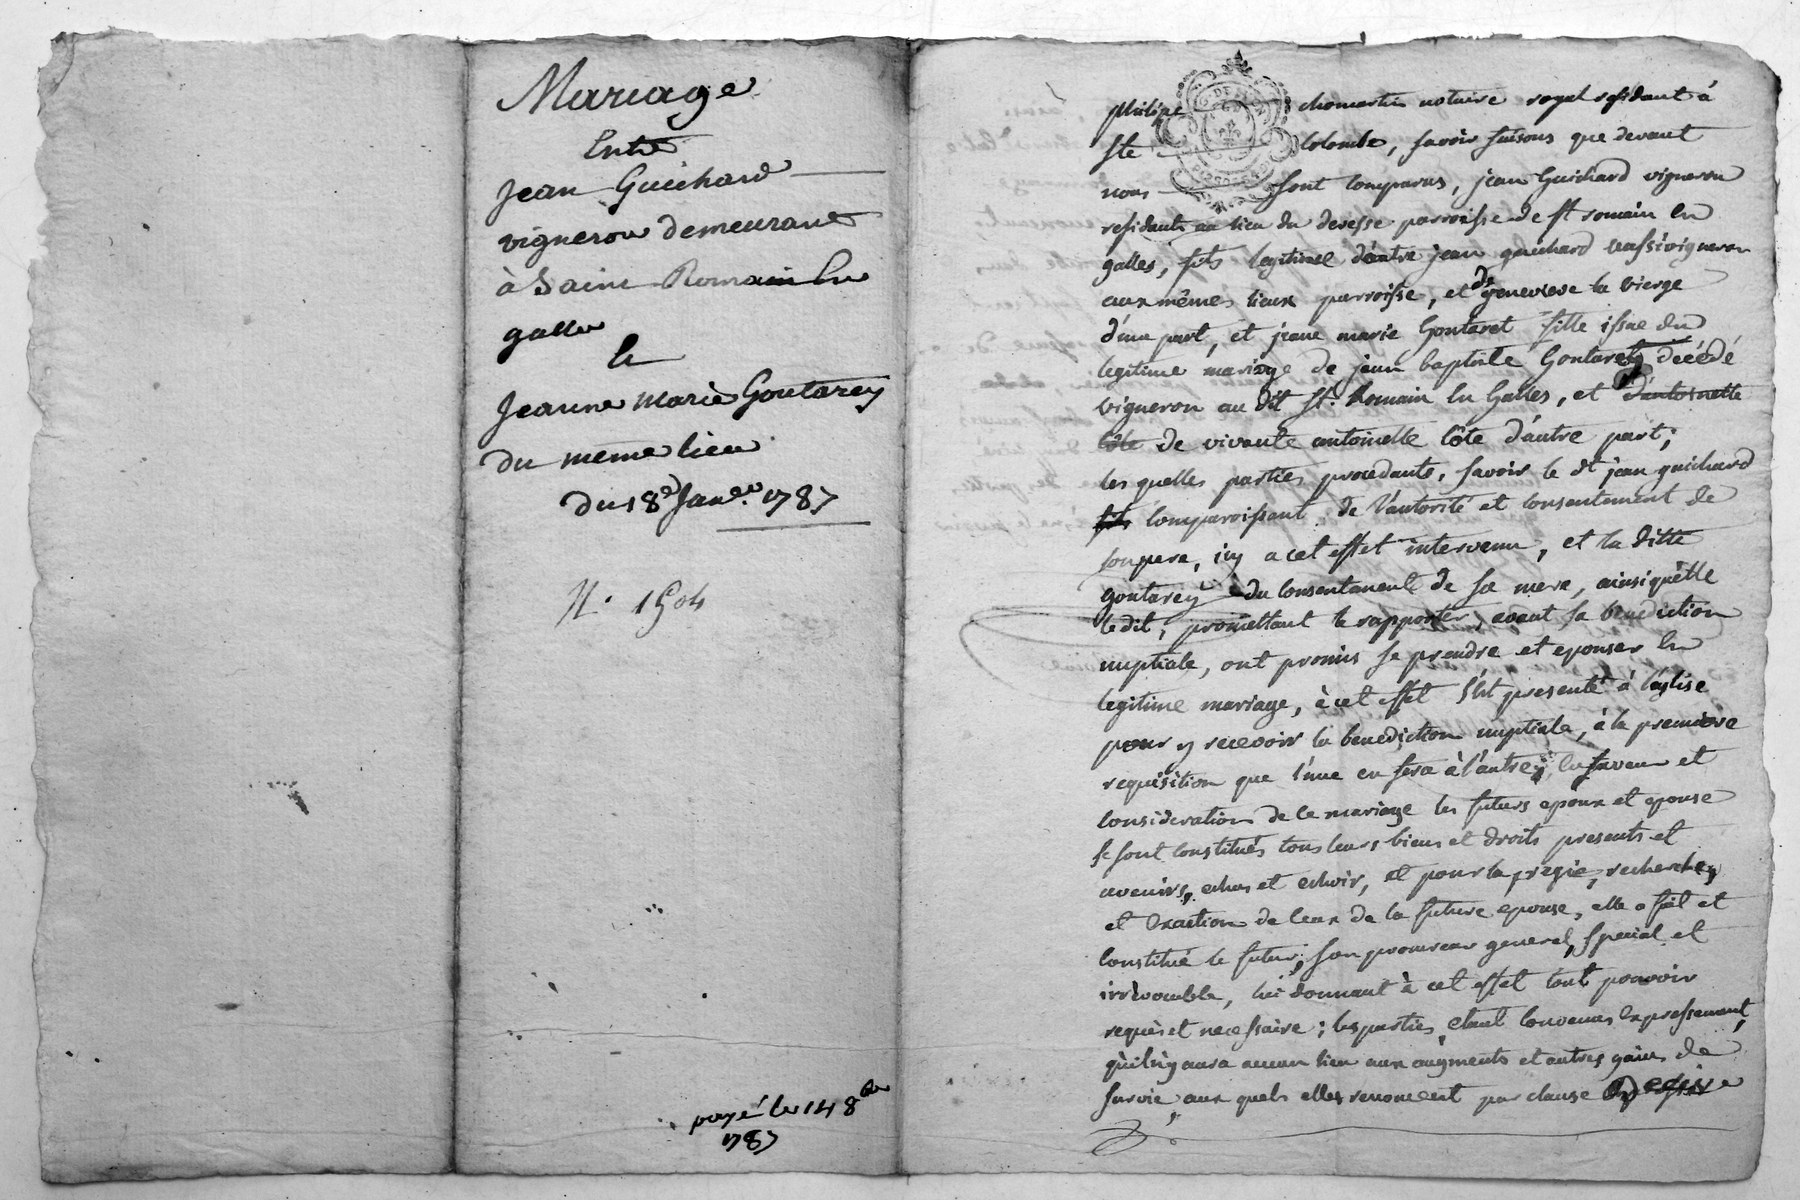 Mariage
Entre
Jean Guichard
vigneron demeurant
à Saint Romain En
galles
Et
Jeanne Marie Goutarey
du meme lieu
du 18e Janer. 1787
N. 1504
payé le 14 8bre
1787
Philipe chomartin notaire royal residant à
Ste Colombe, savoir faisons que devant
nous sont comparus, jean Guichard vigneron
residant au lieu du desesse parroisse de St romain en
galles, fils legitime d'autre jean guichard aussi vigneron
aux mêmes lieux parroisse, et de genevieve la vierge
d'une part, et jeane marie Goutaret fille issue du
legitime mariage de jean baptiste Goutarey décédé
vigneron au dit St. Romain En Galles, et d'antoinette
côte de vivante antoinette Côte d'autre part;
les quelles parties procedants, savoir le dt jean guichard
fils comparoissant de l'autorité et consentement de
son pere, icy a cet effet intervenu, et la ditte
goutarey du consentement de sa mere, ainsi qu'elle
le dit, promettant le rapporter, avant la benediction
nuptiale, ont promis se prendre et epouser en
legitime mariage, à cet effet s'est presenté à l'eglise
pour y recevoir la benediction nuptiale, à la premiere
requisition que l'une en fera à l'autre, en faveur et
consideration de ce mariage les futurs epoux et epouse
se sont constitués tous leurs biens et droits presents et
avenirs, echus et echoir, et pour la regie, recherche,
et Exaction de ceux de la future epouse, elle a fait et
constitué le futur, son procureur general, special et
irrévocable, lui donnant à cet effet tout pouvoir
requis et necessaire; les parties etant convenues Expressement,
qu'il n'y aura aucun lieu aux augments et autres gains de
survie, aux quels elles renoncent par clause Expresse